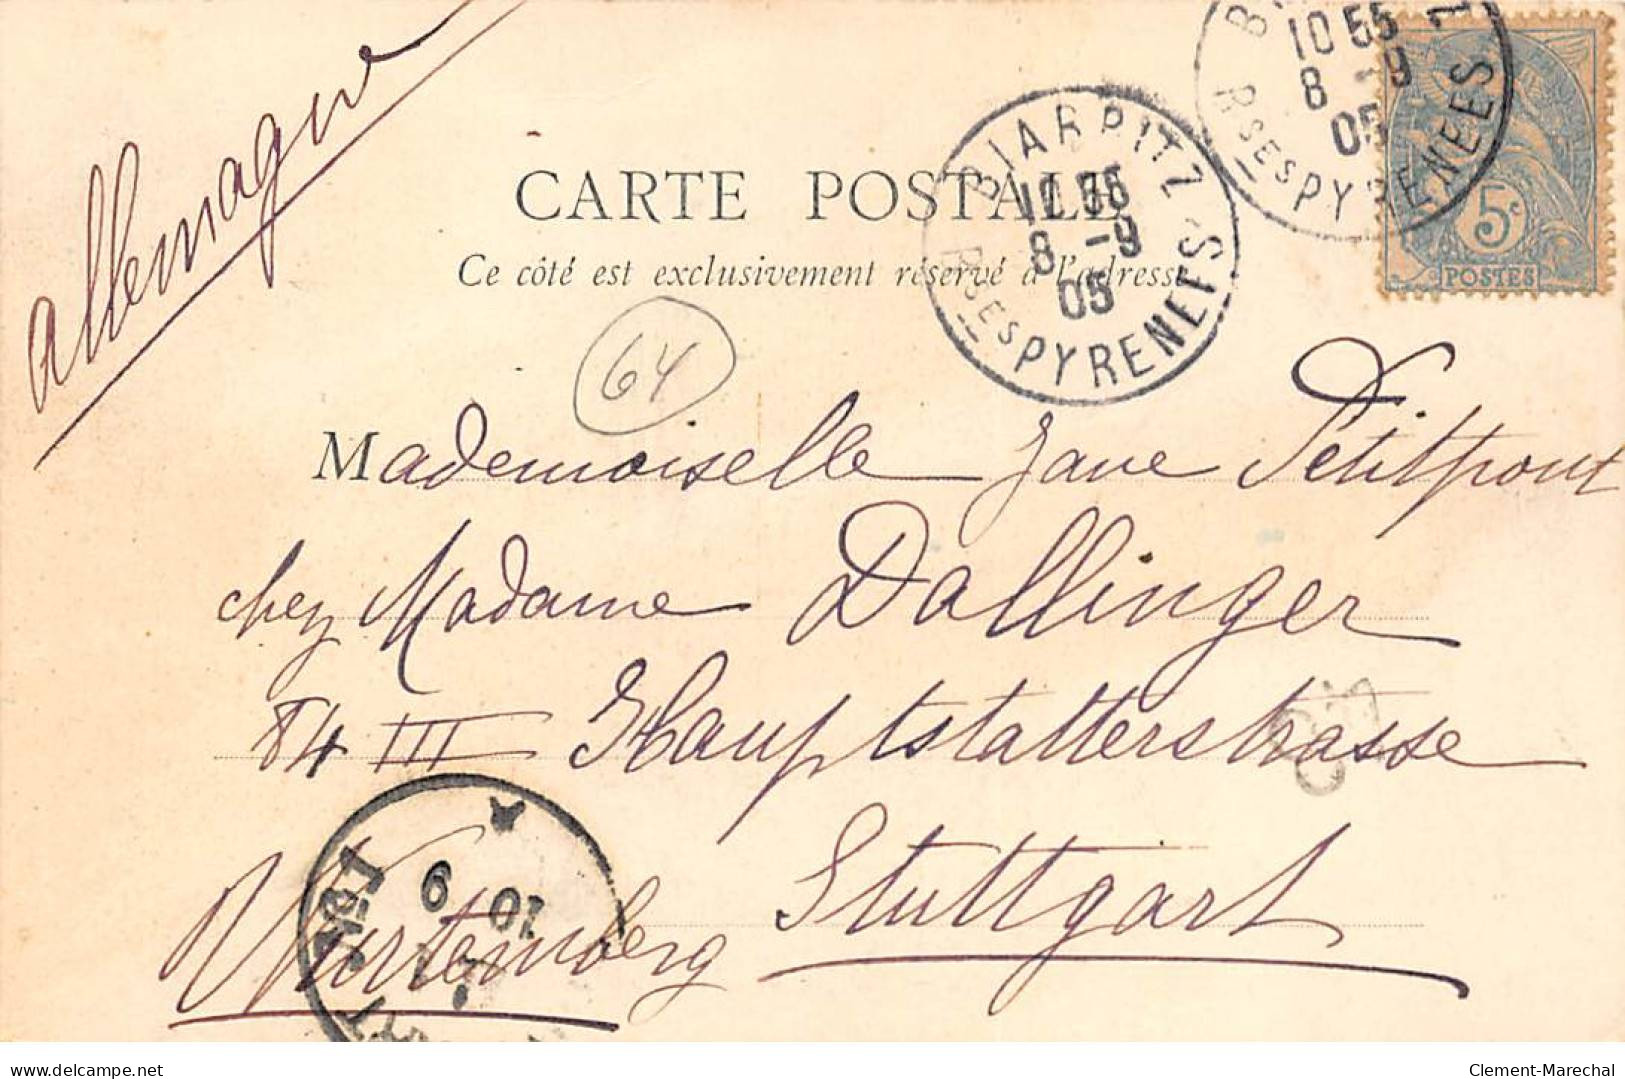 Allemagne
BIARRITZ
10 55
8 -9
05
BSES PYRENEES
10 55
8 -9
05
BSES PYRENEES
5c
POSTES
CARTE POSTALE
Ce côté est exclusivement réservé à l'adresse
64
Mademoiselle Jane Petitpont
chez Madame Dallinger
84 III Hauptstatterstrasse
Stuttgart
Wurtemberg
10 9
delcampe.net
Clement-Marechal